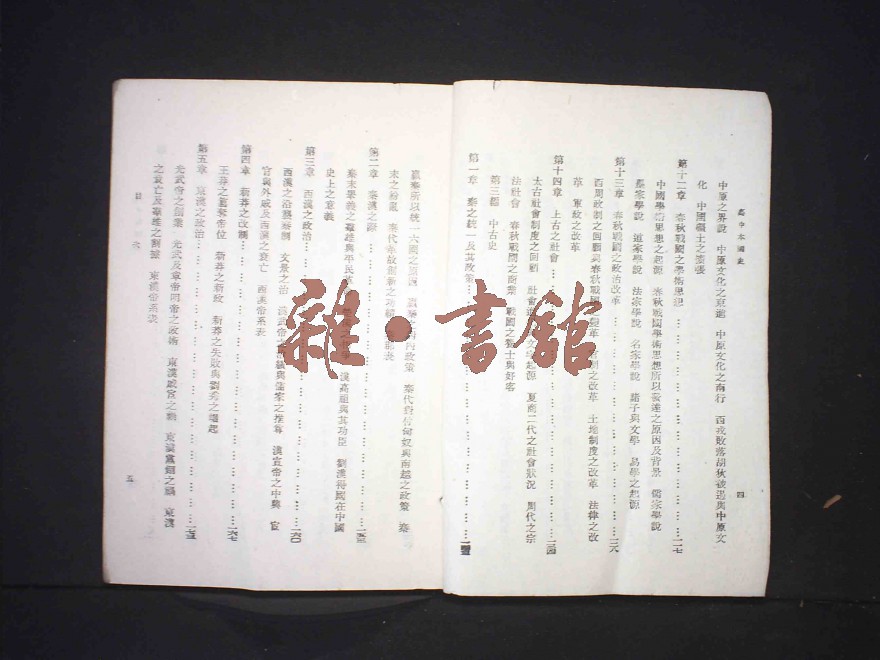 高中本國史
四
中原之界說 中原文化之東進 中原文化之南行 西戎敗落胡狄被迫與中原文
化 中國領土之擴張
第十二章 春秋戰國之學術思想…………一一七
中國學術思想之起源 春秋戰國學術思想所以發達之原因及背景 儒家學說
墨家學說 道家學說 法家學說 名家學說 諸子與文學 易學之起源
第十三章 春秋戰國之政治改革…………
西周政制之回顧與春秋戰國 之改革 土地制度之改革 法律之改
革 軍政之改革
第十四章 上古之社會…………一三四
太古社會制度之回顧 社會 文字起源 夏商二代之社會狀況 周代之宗
法社會 春秋戰國之商業 戰國之養士與好客
第三編 中古史
第一章 秦之統一及其政策…………
嬴秦所以統一六國之原因 政策 秦代對付匈奴與南越之政策 秦
末之紛亂 秦代革故創新之功績
第二章 秦漢之際…………
秦末舉義之羣雄與平民革 漢高祖與其功臣 劉漢得國在中國
史上之意義
第三章 西漢之政治…………一六〇
西漢之沿襲秦制 文景之治 漢武帝之 與儒家之推尊 漢宣帝之中興 宦
官與外戚及西漢之衰亡 西漢帝系表
第四章 新莽之改制…………一六七
王莽之篡奪帝位 新莽之新政 新莽之失敗與劉秀之崛起
第五章 東漢之政治…………
光武帝之創業 光武及章帝明帝之政術 東漢戚宦之禍 東漢黨錮之禍 東漢
之衰亡及羣雄之割據 東漢帝系表
目 次
五
雜·書館